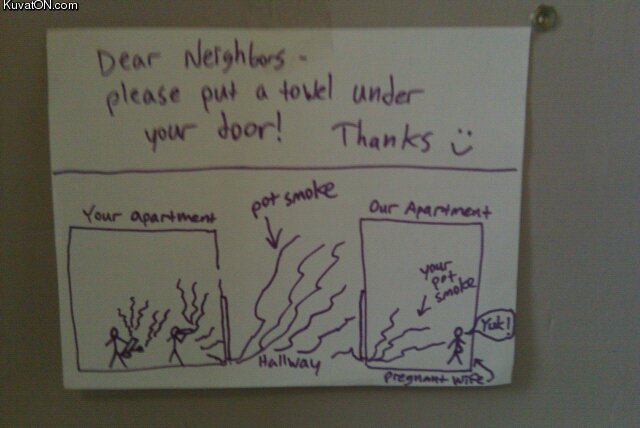 KuvatON.com
Dear Neighbors -
please put a towel under
your door! Thanks :)
Your apartment
pot smoke
Our Apartment
your
pot
smoke
Yuk!
Hallway
pregnant wife